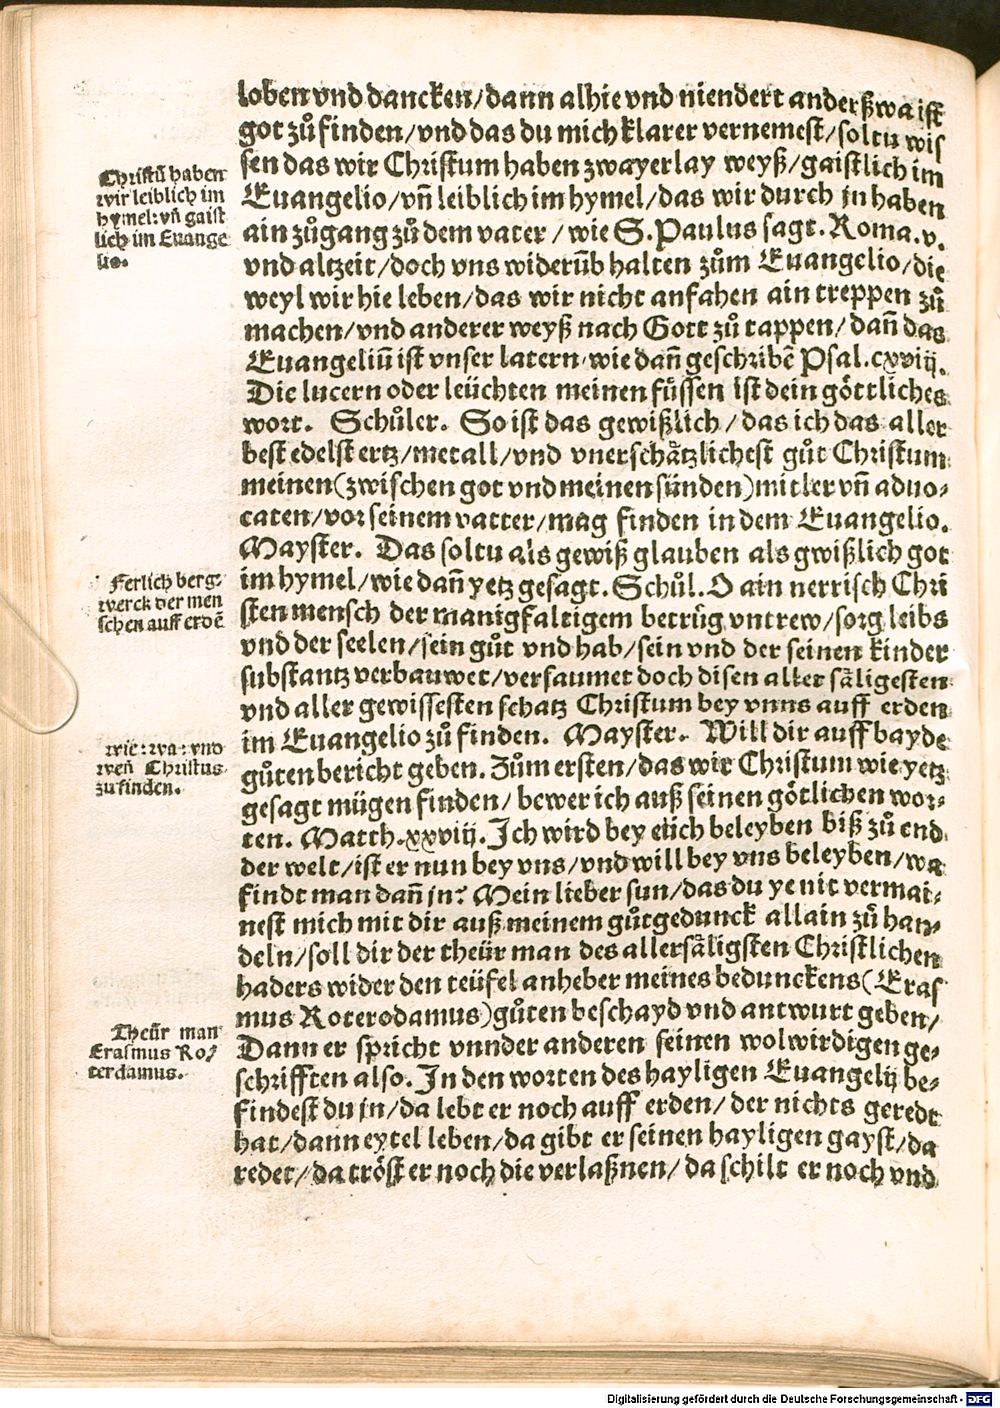 loben vnd dancken/dann alhie vnd niendert anderßwa ist
got zů finden/vnd das du mich klarer vernemest/soltu wis
sen das wir Christum haben zwayerlay weyß/gaistlich im
Euangelio/vñ leiblich im hymel/das wir durch jn haben
ain zůgang zů dem vater/wie S. Paulus sagt. Roma.v.
vnd altzeit/doch vns widerũb halten zům Euangelio/die
weyl wir hie leben/das wir nicht anfahen ain treppen zů
machen/vnd anderer weyß nach Gott zů tappen/dañ das
Euangeliũ ist vnser latern/wie dañ geschribẽ Psal.cxviij.
Die lucern oder leüchten meinen füssen ist dein göttliches
wort. Schůler. So ist das gewißlich/das ich das aller
best edelst ertz/metall/vnd vnerschätzlichest gůt Christum
meinen(zwischen got vnd meinen sünden)mitler vñ aduo-
caten/vor seinem vatter/mag finden in dem Euangelio.
Mayster. Das soltu als gewiß glauben als gwißlich got
im hymel/wie dañ yetz gesagt. Schůl. O ain nerrisch Chri
sten mensch der manigfaltigem betrüg vntrew/sorg leibs
vnd der seelen/sein gůt vnd hab/sein vnd der seinen kinder
substantz verbauwet/versaumet doch disen aller säligesten
vnd aller gewissesten schatz Christum bey vnns auff erden
im Euangelio zů finden. Mayster. Will dir auff bayde
gůten bericht geben. Zům ersten/das wir Christum wie yetz
gesagt mügen finden/bewer ich auß seinen götlichen wor-
ten. Matth.xxviij. Ich wird bey eüch beleyben biß zů end
der welt/ist er nun bey vns/vnd will bey vns beleyben/wa
findt man dañ jn? Mein lieber sun/das du ye nit vermai-
nest mich mit dir auß meinem gůtgedunck allain zů han-
deln/soll dir der theür man des allersäligsten Christlichen
haders wider den teüfel anheber meines bedunckens(Eras
mus Roterodamus)gůten beschayd vnd antwurt geben/
Dann er spricht vnnder anderen seinen wolwirdigen ge-
schrifften also. In den worten des hayligen Euangelij be-
findest du jn/da lebt er noch auff erden/der nichts geredt
hat/dann eytel leben/da gibt er seinen hayligen gayst/da
redet/da tröst er noch die verlaßnen/da schilt er noch vnd
Christũ haben
wir leiblich im
hymel: vñ gaist
lich im Euange
lio.
Ferlich berg-
werck der men
schen auff erdẽ
wie: wa: vnd
weñ Christus
zu finden.
Theür man
Erasmus Ro-
terdamus.
Digitalisierung gefördert durch die Deutsche Forschungsgemeinschaft - DFG